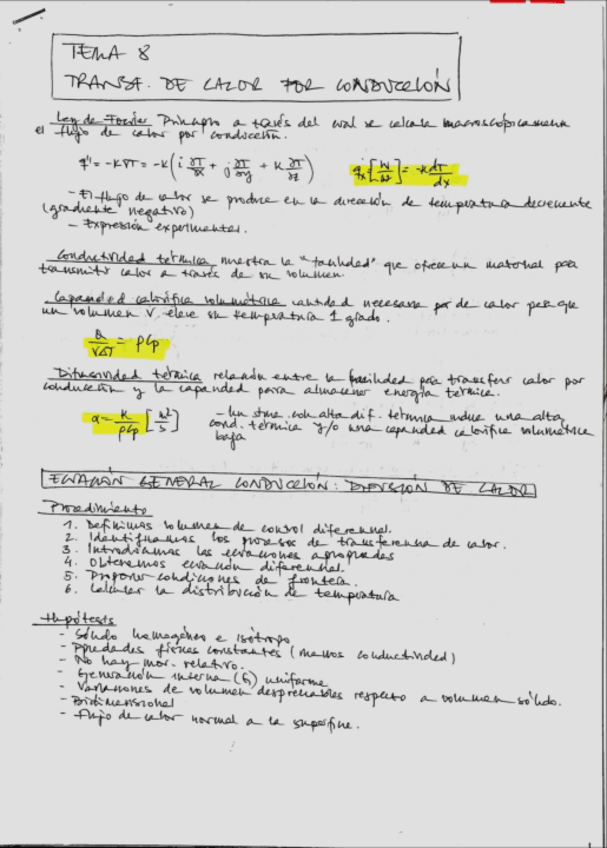 TEMA 8
TRANSF. DE CALOR POR CONDUCCIÓN
Ley de Fourier Principio a través del cual se calcula macroscópicamente
el flujo de calor por conducción.
q'' = -k∇T = -k(i ∂T/∂x + j ∂T/∂y + k ∂T/∂z)
q''x [W/m²] = -k dT/dx
- El flujo de calor se produce en la dirección de temperatura decreciente
(gradiente negativo)
- Expresión experimental.
Conductividad térmica muestra la "facilidad" que ofrece un material para
transmitir calor a través de su volumen.
Capacidad calorífica volumétrica cantidad necesaria de calor para que
un volumen V, eleve su temperatura 1 grado.
Q/VΔT = ρCp
Difusividad térmica relación entre la facilidad para transferir calor por
conducción y la capacidad para almacenar energía térmica.
α = k/ρCp [m²/s]
- Un stma. con alta dif. térmica indica una alta
cond. térmica y/o una capacidad calorífica volumétrica
baja
ECUACIÓN GENERAL CONDUCCIÓN: DIFUSIÓN DE CALOR
Procedimiento
1. Definimos volumen de control diferencial.
2. Identificamos los procesos de transferencia de calor.
3. Introducimos las ecuaciones apropiadas
4. Obtenemos ecuación diferencial.
5. Proponer condiciones de frontera.
6. Calcular la distribución de temperatura
Hipótesis
- Sólido homogéneo e isótropo
- Ppiedades físicas constantes (menos conductividad)
- No hay mov. relativo.
- Generación interna (G) uniforme
- Variaciones de volumen despreciables respecto a volumen sólido.
- Bidimensional
- Flujo de calor normal a la superficie.